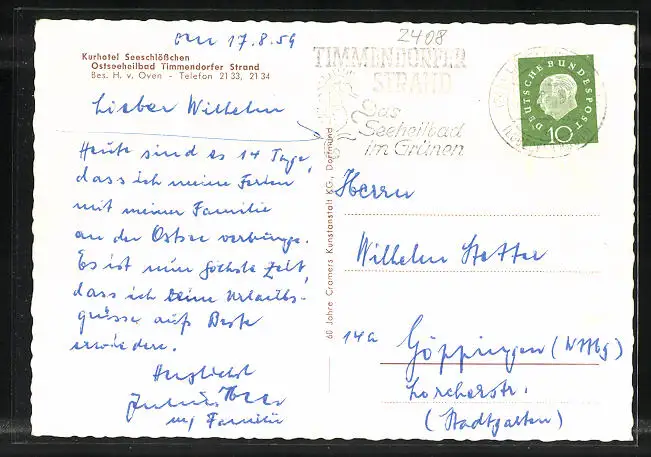 den 17.8.59
Kurhotel Seeschlößchen
Ostseeheilbad Timmendorfer Strand
Bes. H. v. Oven - Telefon 21 33, 21 34
Lieber Wilhelm
Heute sind es 14 Tage,
dass ich meine Ferien
mit meiner Familie
an der Ostsee verbringe.
Es ist nun höchste Zeit,
dass ich Deine Urlaubs-
grüsse aufs Beste
erwidere.
Herzlichst
u. Familie
60 Jahre Cramers Kunstanstalt KG, Dortmund
2408
TIMMENDORFER
STRAND
Das
Seeheilbad
im Grünen
DEUTSCHE BUNDESPOST
10
Herrn
Wilhelm Stetter
14a Göppingen (Wttbg)
Lorcherstr.
(Stadtgarten)